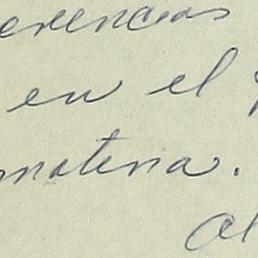 erencias
en el
materia.
al